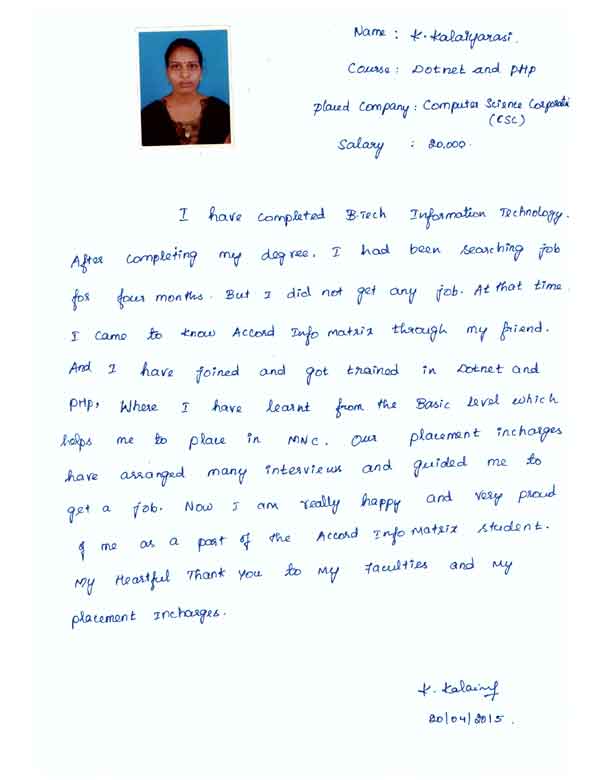 Name : K. Kalaiyarasi.
Course : Dotnet and PHP
Placed Company : Computer Science Corporati
(CSC)
Salary : 20,000.
I have completed B.Tech Information Technology.
After completing my degree, I had been searching job
for four months. But I did not get any job. At that time
I came to know Accord Info matrix through my friend.
And I have joined and got trained in Dotnet and
PHP, Where I have learnt from the Basic Level which
helps me to place in MNC. Our placement incharges
have arranged many interviews and guided me to
get a job. Now I am really happy and very proud
of me as a part of the Accord Info Matrix student.
My Heartful Thank You to My Faculties and My
placement Incharges.
K. Kalai
20/04/2015.